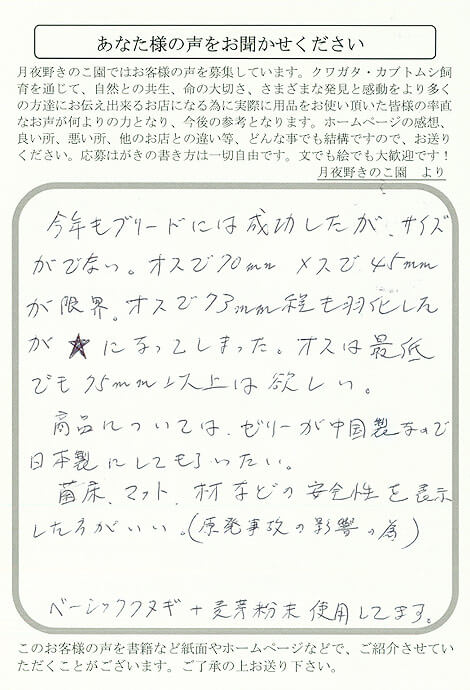 あなた様の声をお聞かせください
月夜野きのこ園ではお客様の声を募集しています。クワガタ・カブトムシ飼
育を通じて、自然との共生、命の大切さ、さまざまな発見と感動をより多く
の方達にお伝え出来るお店になる為に実際に用品をお使い頂いた皆様の率直
なお声が何よりの力となり、今後の参考となります。ホームページの感想、
良い所、悪い所、他のお店との違い等、どんな事でも結構ですので、お送り
ください。応募はがきの書き方は一切自由です。文でも絵でも大歓迎です！
月夜野きのこ園　より
今年もブリードには成功したが、サイズ
がでない。オスで70mm メスで45mm
が限界。オスで73mm程も羽化した
が★になってしまった。オスは最低
でも75mm以上は欲しい。
商品については、ゼリーが中国製なので
日本製にしてもらいたい。
菌床、マット、材などの安全性を表示
した方がいい。(原発事故の影響の為)
ベーシッククヌギ+麦芽粉末使用してます。
このお客様の声を書籍など紙面やホームページなどで、ご紹介させてい
ただくことがございます。ご了承の上お送り下さい。